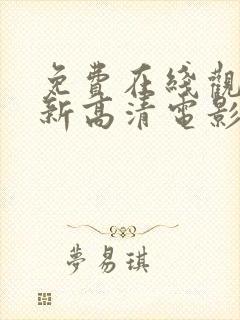 免費在綫觀
新高清電影
夢易琪